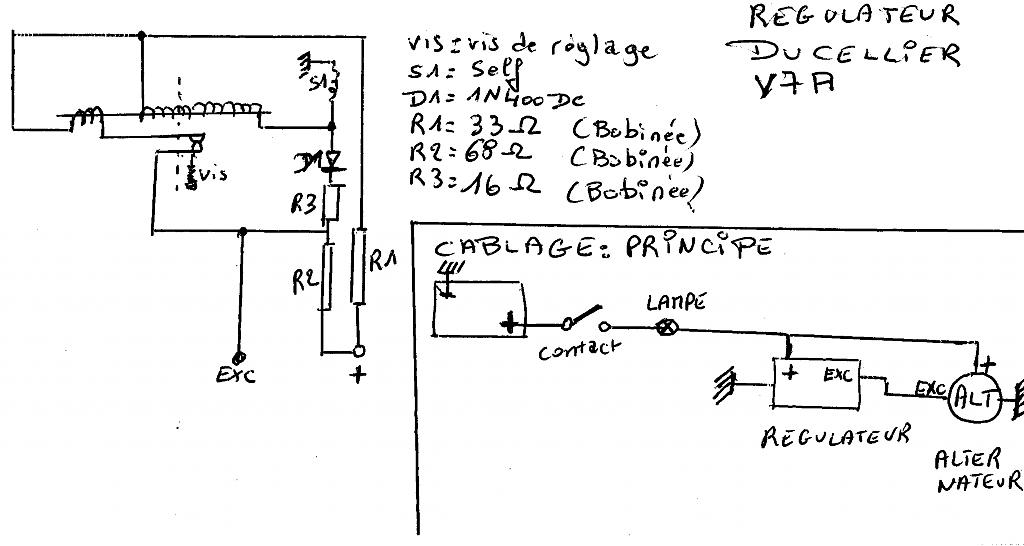 REGULATEUR
DUCELLIER
V7A
vis = vis de réglage
S1 = Self
D1 = 1N400De
R1 = 33 Ω (Bobinée)
R2 = 68 Ω (Bobinée)
R3 = 16 Ω (Bobinée)
S1
D1
vis
R3
R2
R1
EXC
+
CABLAGE: PRINCIPE
+
LAMPE
contact
+
+ EXC
EXC
ALT
REGULATEUR
ALTER
NATEUR